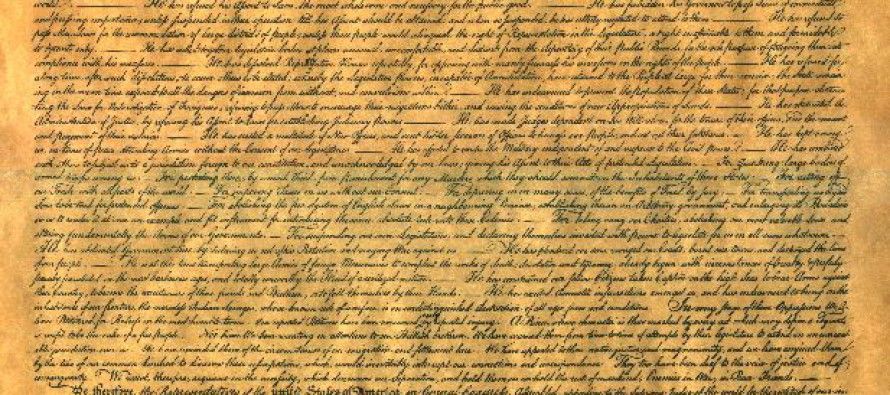 He has refused his Assent to Laws, the most wholesome and necessary for the public good.
and when so suspended, he has utterly neglected to attend to them. He has refused to
pass other Laws for the accommodation of large districts of people, unless those people would relinquish the right of Representation in the Legislature, a right inestimable to them and formidable
to tyrants only. He has called together legislative bodies at places unusual, uncomfortable, and distant from the depository of their Public Records, for the sole purpose of fatiguing them into
compliance with his measures. He has dissolved Representative Houses repeatedly, for opposing with manly firmness his invasions on the rights of the people. He has refused for
a long time, after such dissolutions, to cause others to be elected; whereby the Legislative powers, incapable of Annihilation, have returned to the People at large for their exercise; the State remain-
ing in the mean time exposed to all the dangers of invasion from without, and convulsions within. He has endeavoured to prevent the population of these States; for that purpose obstruc-
ting the Laws for Naturalization of Foreigners; refusing to pass others to encourage their migrations hither, and raising the conditions of new Appropriations of Lands. He has obstructed the
Administration of Justice, by refusing his Assent to Laws for establishing Judiciary powers. He has made Judges dependent on his Will alone, for the tenure of their offices, and the amount
and payment of their salaries. He has erected a multitude of New Offices, and sent hither swarms of Officers to harrass our people, and eat out their substance. He has kept among
us, in times of peace, Standing Armies without the Consent of our legislatures. He has affected to render the Military independent of and superior to the Civil power. He has combined
with others to subject us to a jurisdiction foreign to our constitution, and unacknowledged by our laws; giving his Assent to their Acts of pretended Legislation: For Quartering large bodies of
armed troops among us: For protecting them, by a mock Trial, from punishment for any Murders which they should commit on the Inhabitants of these States: For cutting off
our Trade with all parts of the world: For imposing Taxes on us without our Consent: For depriving us in many cases, of the benefits of Trial by Jury: For transporting us beyond
Seas to be tried for pretended offences For abolishing the free System of English Laws in a neighbouring Province, establishing therein an Arbitrary government, and enlarging its Boundaries
so as to render it at once an example and fit instrument for introducing the same absolute rule into these Colonies: For taking away our Charters, abolishing our most valuable Laws, and
altering fundamentally the Forms of our Governments: For suspending our own Legislatures, and declaring themselves invested with power to legislate for us in all cases whatsoever.
He has abdicated Government here, by declaring us out of his Protection and waging War against us. He has plundered our seas, ravaged our Coasts, burnt our towns, and destroyed the lives
of our people. He is at this time transporting large Armies of foreign Mercenaries to compleat the works of death, desolation and tyranny, already begun with circumstances of Cruelty & perfidy
scarcely paralleled in the most barbarous ages, and totally unworthy the Head of a civilized nation. He has constrained our fellow Citizens taken Captive on the high Seas to bear Arms against
their Country, to become the executioners of their friends and Brethren, or to fall themselves by their Hands. He has excited domestic insurrections amongst us, and has endeavoured to bring on the
inhabitants of our frontiers, the merciless Indian Savages, whose known rule of warfare, is an undistinguished destruction of all ages, sexes and conditions. In every stage of these Oppressions We
have Petitioned for Redress in the most humble terms: Our repeated Petitions have been answered only by repeated injury. A Prince, whose character is thus marked by every act which may define a Tyrant,
is unfit to be the ruler of a free people. Nor have We been wanting in attentions to our Brittish brethren. We have warned them from time to time of attempts by their legislature to extend an unwarrant-
able jurisdiction over us. We have reminded them of the circumstances of our emigration and settlement here. We have appealed to their native justice and magnanimity, and we have conjured them
by the ties of our common kindred to disavow these usurpations, which, would inevitably interrupt our connections and correspondence. They too have been deaf to the voice of justice and of
consanguinity. We must, therefore, acquiesce in the necessity, which denounces our Separation, and hold them, as we hold the rest of mankind, Enemies in War, in Peace Friends.
We, therefore, the Representatives of the united States of America, in General Congress, Assembled, appealing to the Supreme Judge of the world for the rectitude of our in-